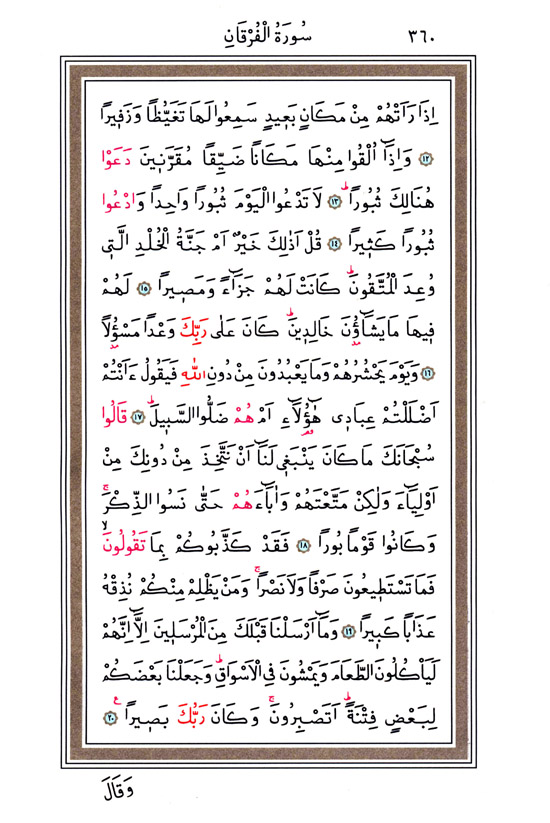 سُورَةُ الْفُرْقَانِ ٣٦٠
اِذَا رَاَتْهُمْ مِنْ مَكَانٍ بَعٖيدٍ سَمِعُوا لَهَا تَغَيُّظًا وَزَفٖيرًا
﴿١٢﴾ وَاِذَٓا اُلْقُوا مِنْهَا مَكَانًا ضَيِّقًا مُقَرَّنٖينَ دَعَوْا
هُنَالِكَ ثُبُورًاؕ ﴿١٣﴾ لَا تَدْعُوا الْيَوْمَ ثُبُورًا وَاحِدًا وَادْعُوا
ثُبُورًا كَثٖيرًا ﴿١٤﴾ قُلْ اَذٰلِكَ خَيْرٌ اَمْ جَنَّةُ الْخُلْدِ الَّتٖى
وُعِدَ الْمُتَّقُونَؕ كَانَتْ لَهُمْ جَزَٓاءً وَمَصٖيرًا ﴿١٥﴾ لَهُمْ
فٖيهَا مَا يَشَٓاؤُ۫نَ خَالِدٖينَؕ كَانَ عَلٰى رَبِّكَ وَعْدًا مَسْؤُ۫لًا
﴿١٦﴾ وَيَوْمَ يَحْشُرُهُمْ وَمَا يَعْبُدُونَ مِنْ دُونِ اللّٰهِ فَيَقُولُ ءَاَنْتُمْ
اَضْلَلْتُمْ عِبَادٖى هٰٓؤُ۬لَٓاءِ اَمْ هُمْ ضَلُّوا السَّبٖيلَؕ ﴿١٧﴾ قَالُوا
سُبْحَانَكَ مَا كَانَ يَنْبَغٖى لَنَٓا اَنْ نَتَّخِذَ مِنْ دُونِكَ مِنْ
اَوْلِيَٓاءَ وَلٰكِنْ مَتَّعْتَهُمْ وَاٰبَٓاءَهُمْ حَتّٰى نَسُوا الذِّكْرَۚ
وَكَانُوا قَوْمًا بُورًا ﴿١٨﴾ فَقَدْ كَذَّبُوكُمْ بِمَا تَقُولُونَۙ
فَمَا تَسْتَطٖيعُونَ صَرْفًا وَلَا نَصْرًاۚ وَمَنْ يَظْلِمْ مِنْكُمْ نُذِقْهُ
عَذَابًا كَبٖيرًا ﴿١٩﴾ وَمَٓا اَرْسَلْنَا قَبْلَكَ مِنَ الْمُرْسَلٖينَ اِلَّٓا اِنَّهُمْ
لَيَاْكُلُونَ الطَّعَامَ وَيَمْشُونَ فِى الْاَسْوَاقِؕ وَجَعَلْنَا بَعْضَكُمْ
لِبَعْضٍ فِتْنَةًؕ اَتَصْبِرُونَۚ وَكَانَ رَبُّكَ بَصٖيرًا ع ﴿٢٠﴾
وَقَالَ